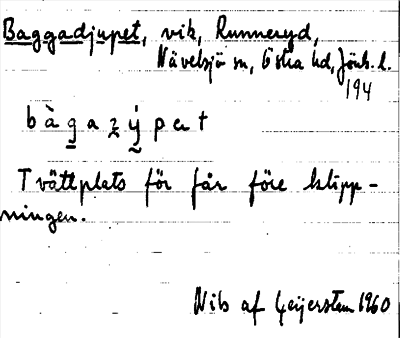 Baggadjupet, vik, Runneryd,
Nävelsjö sn, Östra hd, Jönk. l.
194
bàgazýpɐt
Tvättplats för får före klipp-
ningen.
Nils af Geijerstam 1960